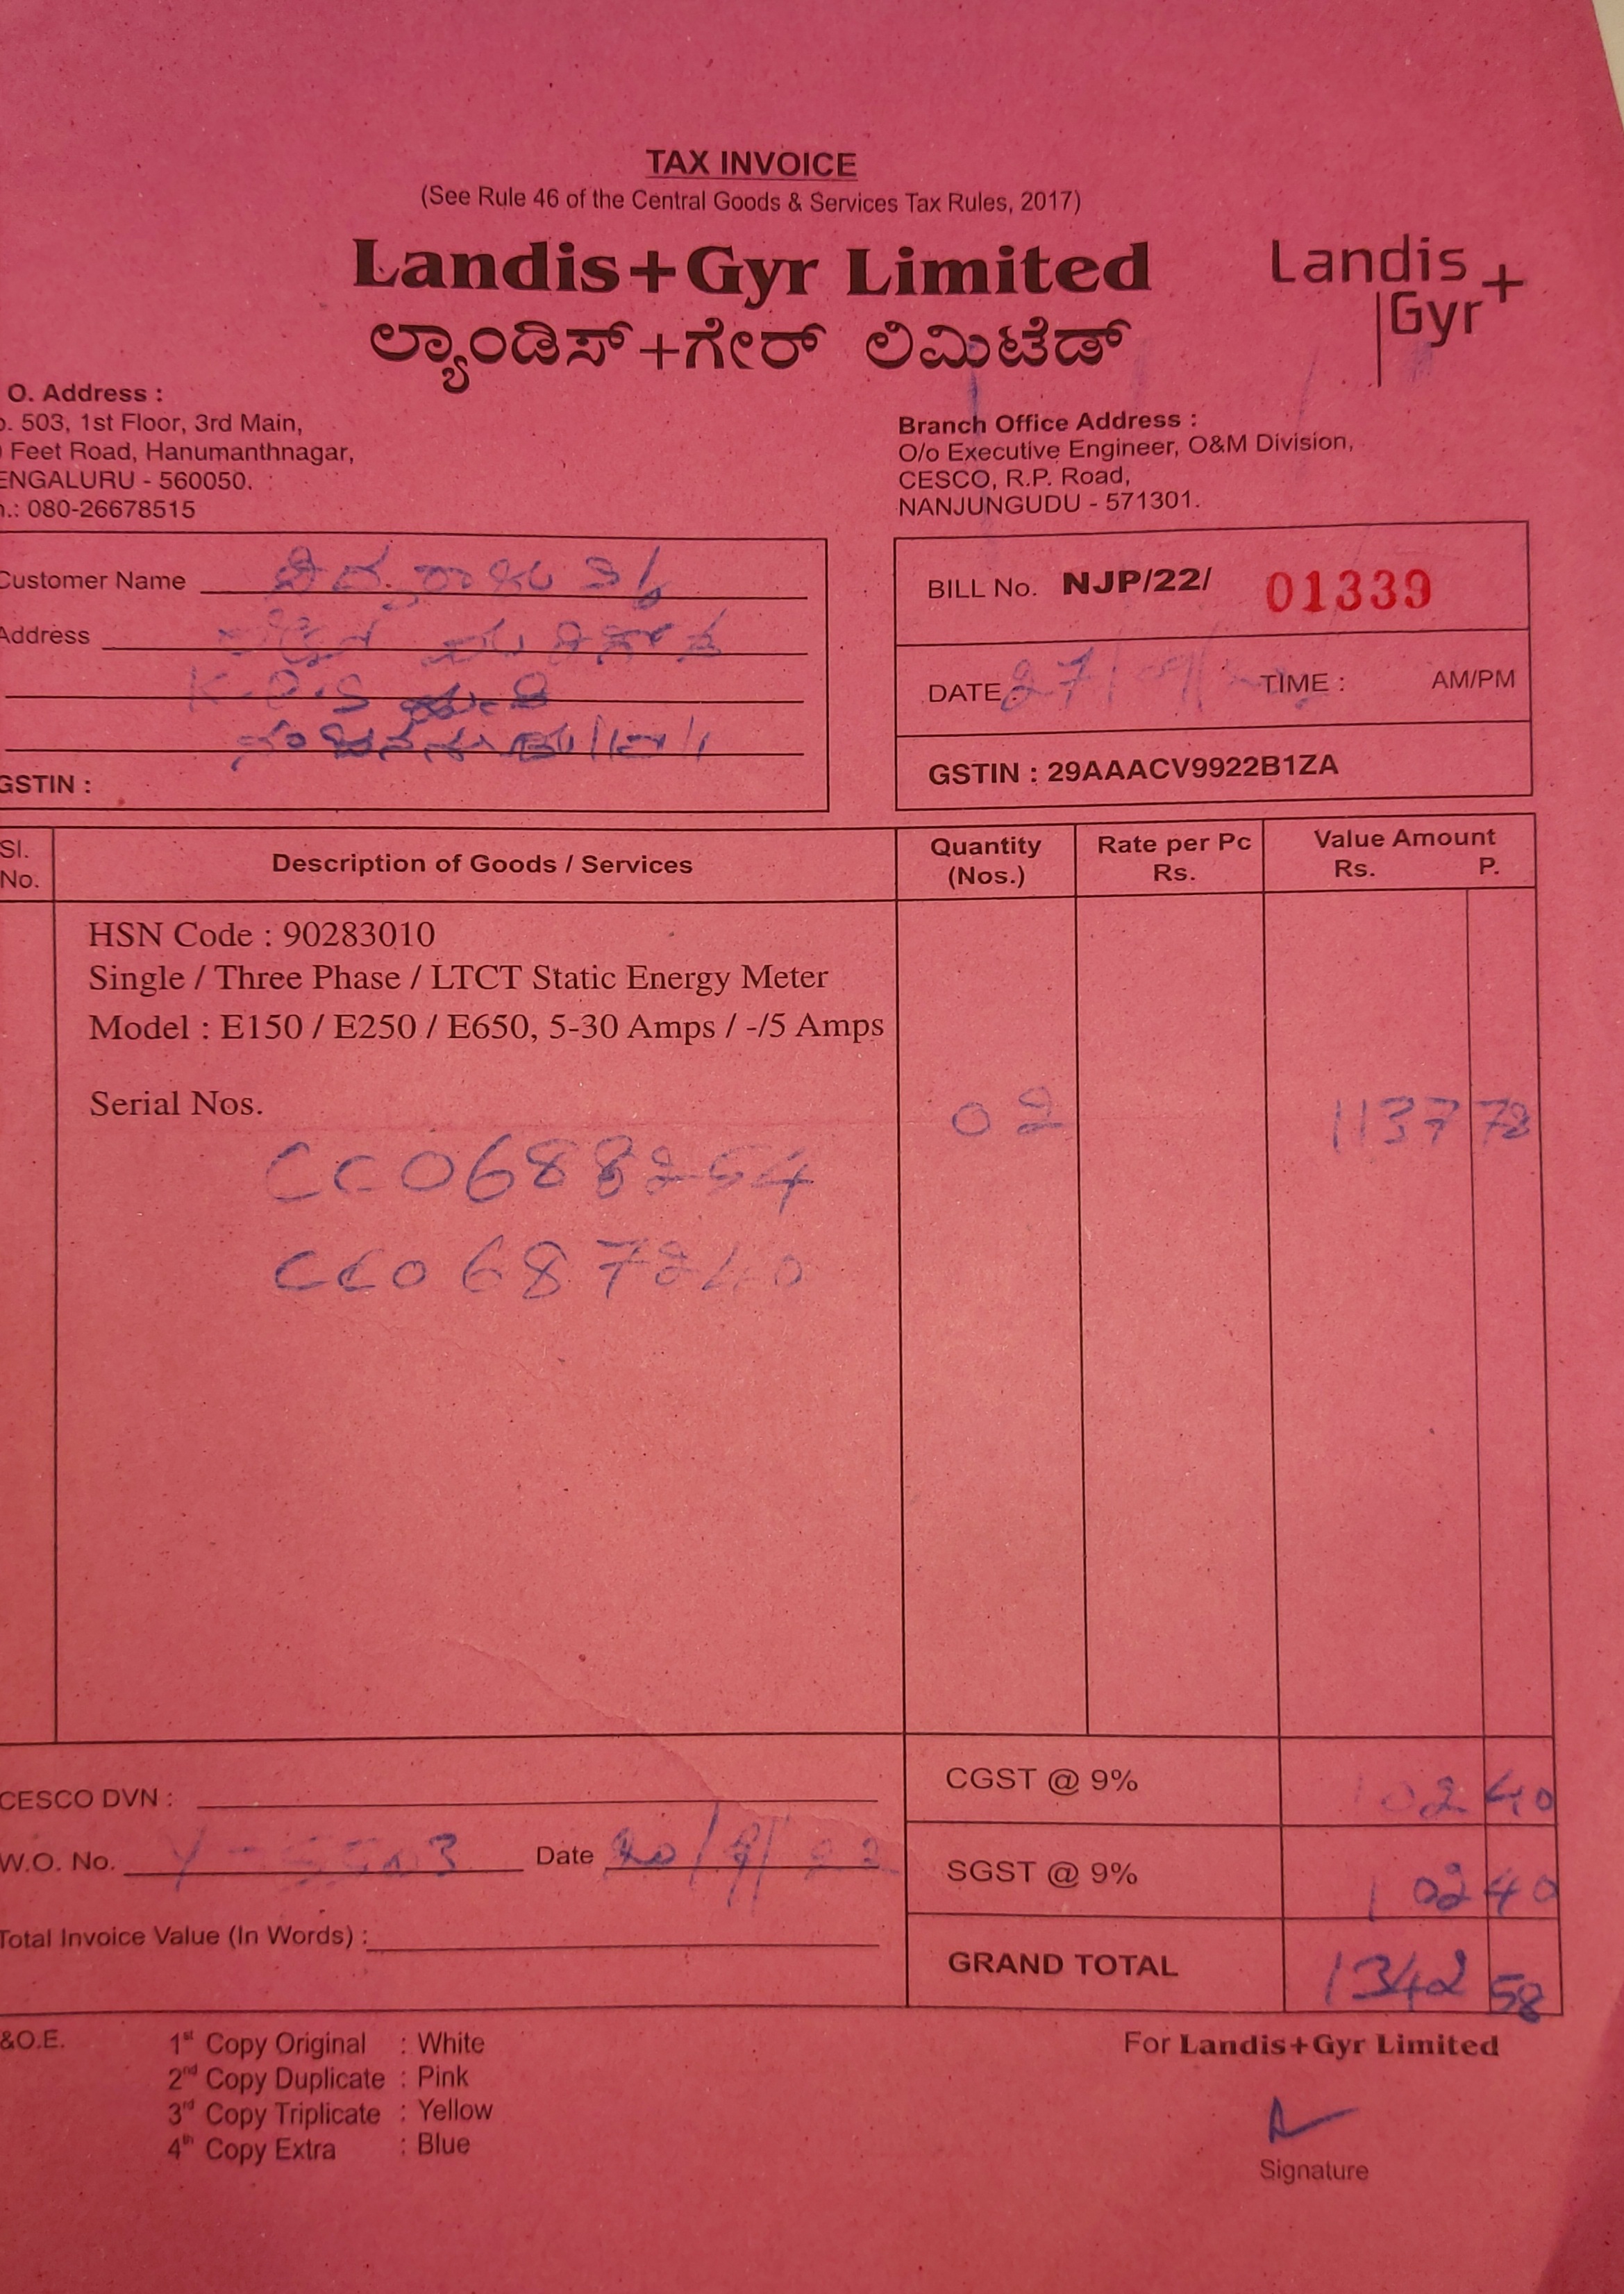 TAX INVOICE
(See Rule 46 of the Central Goods & Services Tax Rules, 2017)
Landis+Gyr Limited
ಲ್ಯಾಂಡಿಸ್+ಗೇರ್ ಲಿಮಿಟೆಡ್
Landis
Gyr+
O. Address :
503, 1st Floor, 3rd Main,
Feet Road, Hanumanthnagar,
ENGALURU - 560050.
080-26678515
Branch Office Address :
O/o Executive Engineer, O&M Division,
CESCO, R.P. Road,
NANJUNGUDU - 571301.
Customer Name
Address
GSTIN :
BILL No. NJP/22/ 01339
DATE : 27/9/ TIME : AM/PM
GSTIN : 29AAACV9922B1ZA
Sl. No. Description of Goods / Services Quantity (Nos.) Rate per Pc Rs. Value Amount Rs. P.
HSN Code : 90283010
Single / Three Phase / LTCT Static Energy Meter
Model : E150 / E250 / E650, 5-30 Amps / -/5 Amps
Serial Nos. 02 1137 78
CC0688254
CC0687240
CESCO DVN :
W.O. No. Date 20/9/22
Total Invoice Value (In Words) :
CGST @ 9% 102 40
SGST @ 9% 102 40
GRAND TOTAL 1342 58
&O.E.
1st Copy Original : White
2nd Copy Duplicate : Pink
3rd Copy Triplicate : Yellow
4th Copy Extra : Blue
For Landis+Gyr Limited
Signature